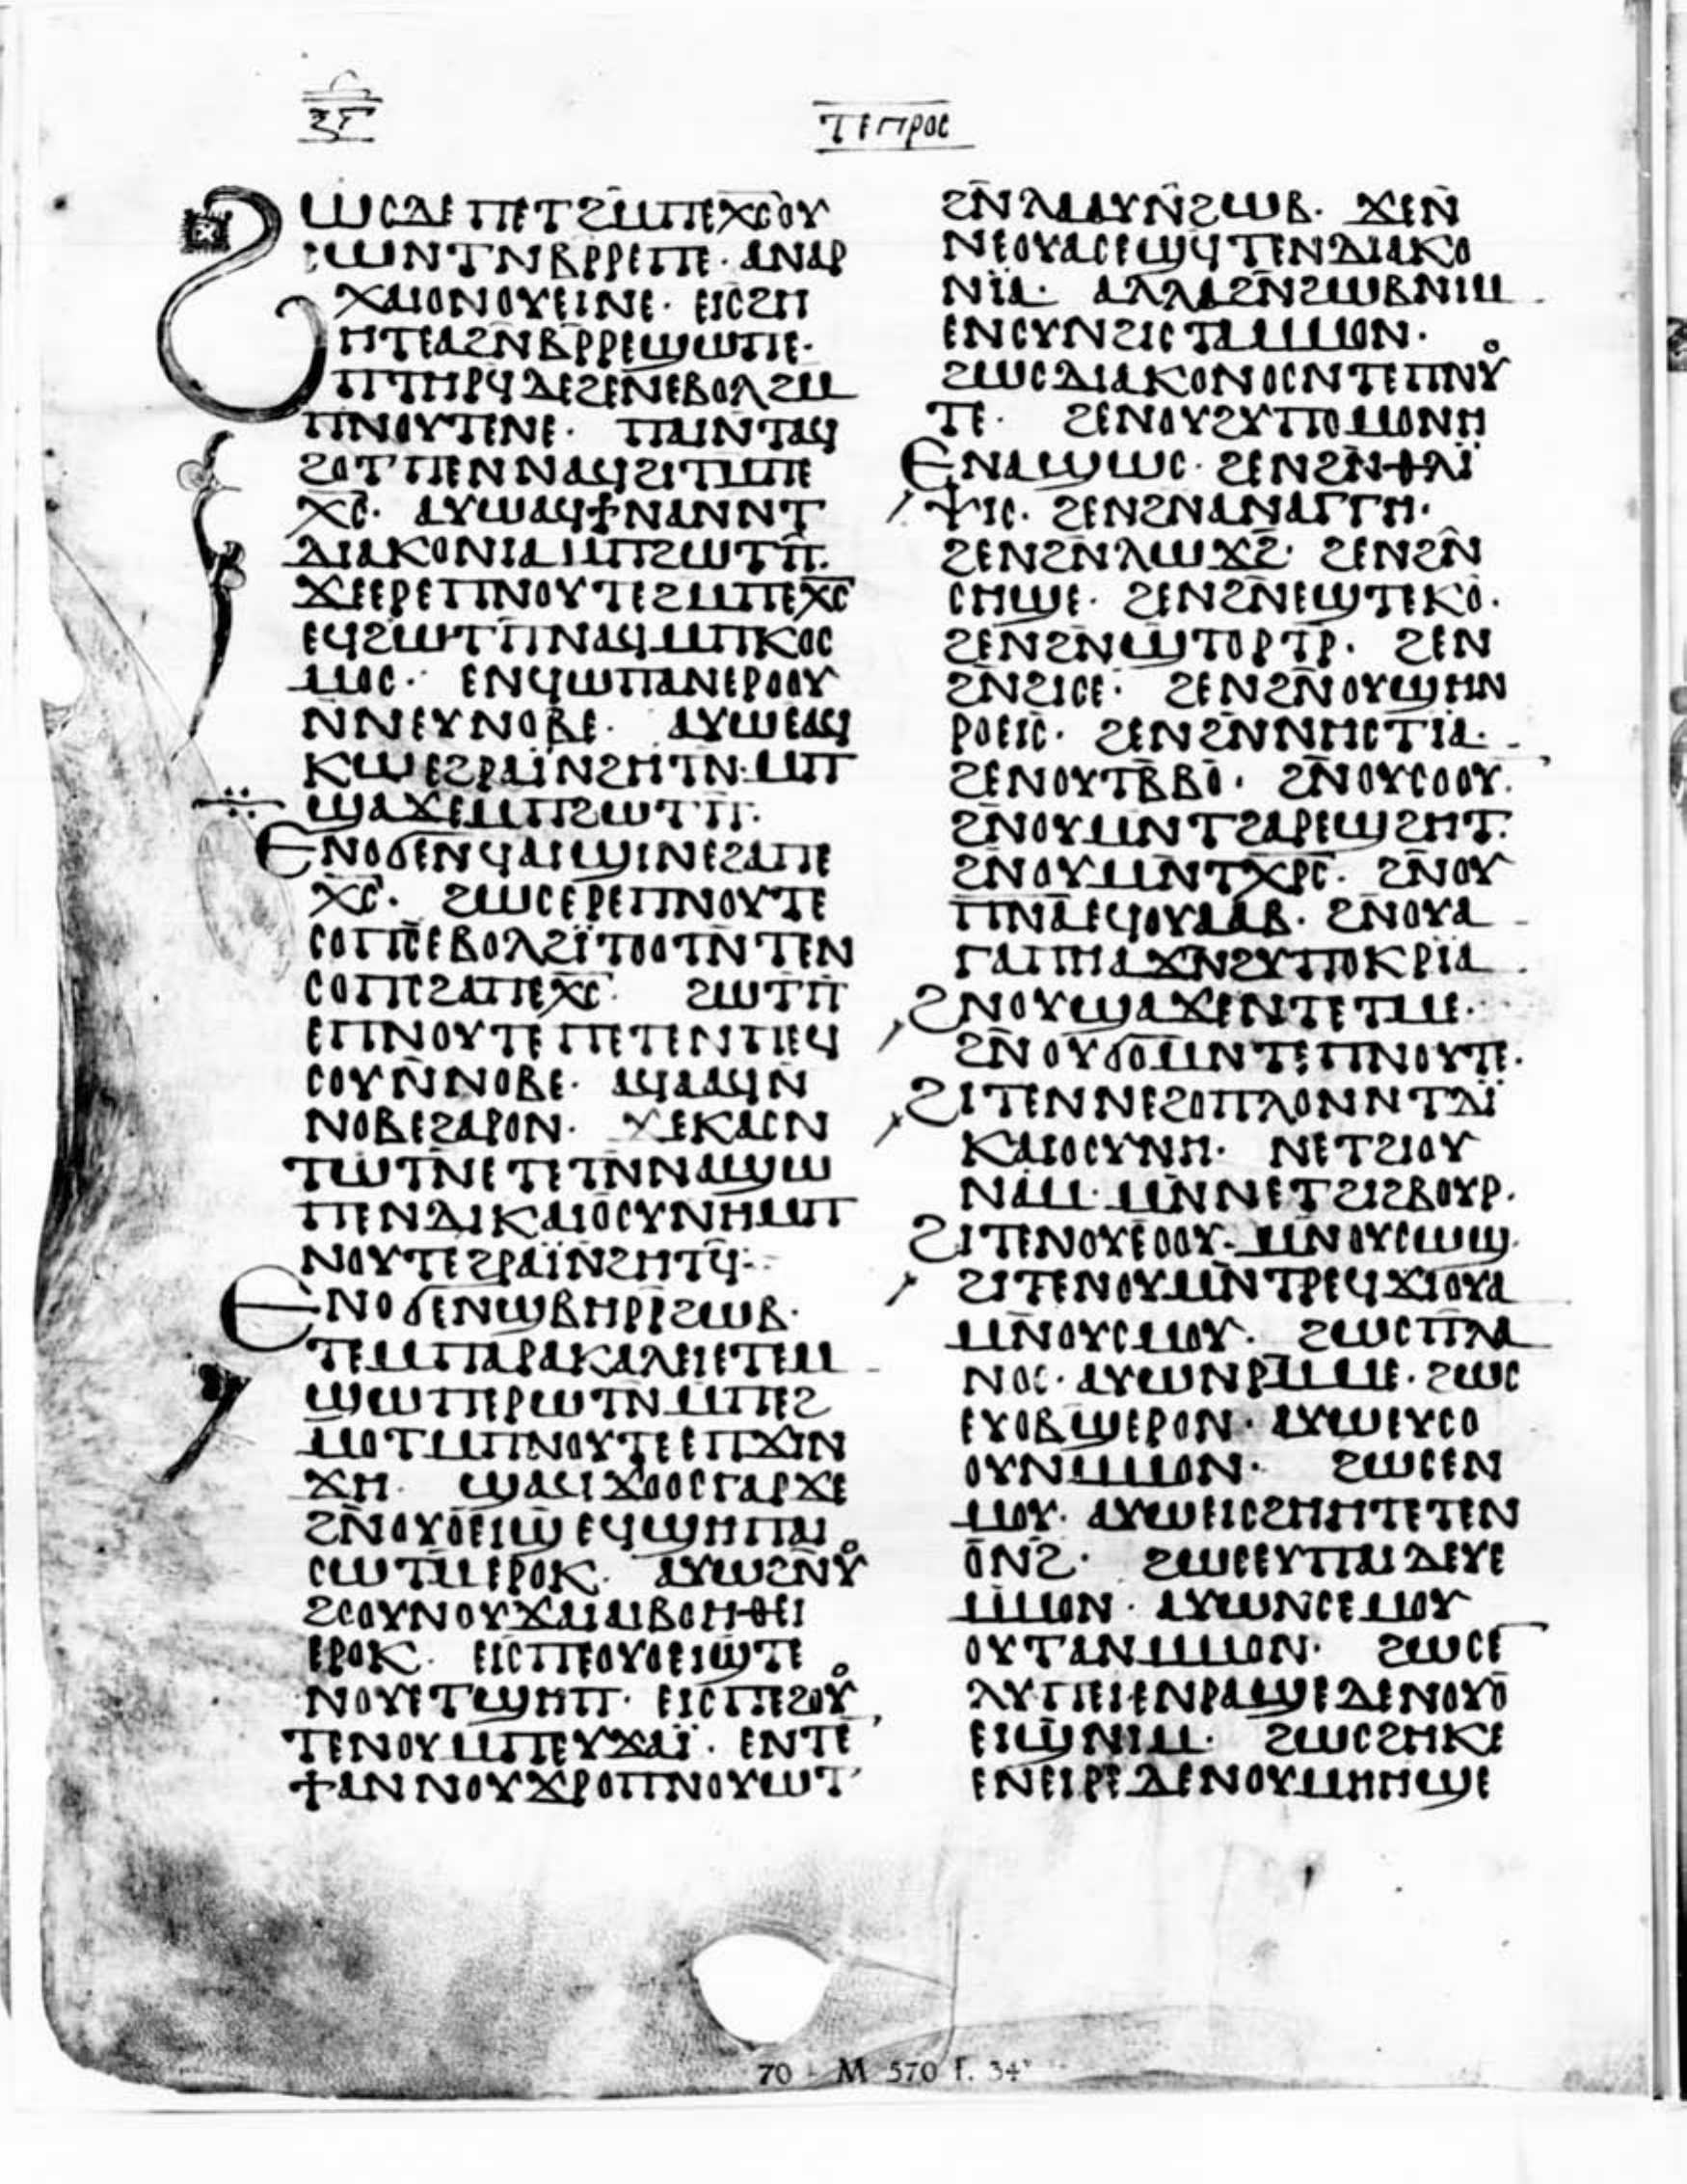 ⲝⲅ
ⲧⲉⲡⲣⲟⲥ
ϩⲱⲥⲇⲉ ⲡⲉⲧϩⲙⲡⲉⲭ̅ⲥ̅ⲟⲩ
ⲥⲱⲛⲧⲛⲃⲣⲣⲉⲡⲉ· ⲁⲛⲁⲣ
ⲭⲁⲓⲟⲛⲟⲩⲉⲓⲛⲉ· ⲉⲓⲥϩⲏ
ⲏⲧⲉⲁϩⲛ̄ⲃⲣⲣⲉϣⲱⲡⲉ·
ⲡⲧⲏⲣϥⲇⲉϩⲉⲛⲉⲃⲟⲗϩⲙ
ⲡⲛⲟⲩⲧⲉⲛⲉ· ⲡⲁⲓⲛⲧⲁϥ
ϩⲟⲧⲡⲉⲛⲛⲁϥϩⲓⲧⲙⲡⲉ
ⲭ̅ⲥ̅· ⲁⲩⲱⲁϥϯⲛⲁⲛⲛⲧ
ⲇⲓⲁⲕⲟⲛⲓⲁⲙⲡϩⲱⲧⲡ̄·
ϫⲉⲉⲣⲉⲡⲛⲟⲩⲧⲉϩⲙⲡⲉⲭ̅ⲥ̅
ⲉϥϩⲱⲧⲡⲛⲁϥⲙⲡⲕⲟⲥ
ⲙⲟⲥ· ⲉⲛϥⲱⲡⲁⲛⲉⲣⲟⲟⲩ
ⲛⲛⲉⲩⲛⲟⲃⲉ· ⲁⲩⲱⲉⲁϥ
ⲕⲱⲉϩⲣⲁⲓ̈ⲛϩⲏⲧⲛ·ⲙⲡ
ϣⲁϫⲉⲙⲡϩⲱⲧⲡ·
ⲉⲛⲟϭⲉⲛϥⲁⲓϣⲓⲛⲉϩⲁⲡⲉ
ⲭ̅ⲥ̅· ϩⲱⲥⲉⲣⲉⲡⲛⲟⲩⲧⲉ
ⲥⲟⲡⲥ̄ⲉⲃⲟⲗϩⲓ̈ⲧⲟⲟⲧⲛ̄ⲧⲉⲛ
ⲥⲟⲡⲥϩⲁⲡⲉⲭ̅ⲥ̅· ϩⲱⲧⲡ
ⲉⲡⲛⲟⲩⲧⲉ ⲡⲉⲧⲉⲛⲧⲉϥ
ⲥⲟⲩⲛ̄ⲛⲟⲃⲉ· ⲁϥⲁⲁϥⲛ̄
ⲛⲟⲃⲉϩⲁⲣⲟⲛ· ϫⲉⲕⲁⲥⲛ
ⲧⲱⲧⲛ̄ⲉⲧⲉⲧⲛ̄ⲛⲁϣⲱ
ⲡⲉⲛⲇⲓⲕⲁⲓⲟⲥⲩⲛⲏⲙⲡ
ⲛⲟⲩⲧⲉϩⲣⲁⲓ̈ⲛ̄ϩⲏⲧϥ̄·
ⲉⲛⲟϭⲉⲛϣⲃⲏⲣⲣ̄ϩⲱⲃ·
ⲧⲉⲙⲡⲁⲣⲁⲕⲁⲗⲉⲓⲉⲧⲉⲙ
ϣⲱⲡⲉⲣⲱⲧⲛ ⲙⲡⲉϩ
ⲙⲟⲧⲙⲡⲛⲟⲩⲧⲉⲉⲡϫⲓⲛ
ϫⲏ· ϣⲁϥϫⲟⲟⲥⲅⲁⲣϫⲉ
ϩⲛ̄ⲟⲩⲟⲉⲓϣ ⲉϥϣⲏⲡⲁⲓ
ⲥⲱⲧⲙⲉⲣⲟⲕ· ⲁⲩⲱϩⲛⲟⲩ
ϩⲟⲟⲩⲛⲟⲩϫⲁⲓⲁⲓⲃⲟⲏⲑⲉⲓ
ⲉⲣⲟⲕ· ⲉⲓⲥⲡⲉⲟⲩⲟⲉⲓϣⲧⲉ
ⲛⲟⲩⲉⲧϣⲏⲡ· ⲉⲓⲥⲡⲉϩⲟⲟⲩ
ⲧⲉⲛⲟⲩ ⲙⲡⲉⲩϫⲁⲓ̈· ⲉⲛⲧⲉ
ϯⲁⲛⲛⲟⲩϫⲣⲟⲡⲛⲟⲩⲱⲧ
ϩⲛ̄ⲗⲁⲁⲩⲛ̄ϩⲱⲃ· ϫⲉⲛ̄
ⲛⲉⲟⲩⲁⲥⲉϣϥ ⲧⲉⲛⲇⲓⲁⲕⲟ
ⲛⲓ̈ⲁ· ⲁⲗⲗⲁϩⲛ̄ϩⲱⲃⲛⲓⲙ
ⲉⲛⲥⲩⲛϩⲓⲥⲧⲁⲙⲙⲟⲛ·
ϩⲱⲥⲇⲓⲁⲕⲟⲛⲟⲥⲛⲧⲉⲡⲛⲟⲩ
ⲧⲉ· ϩⲉⲛⲟⲩϩⲩⲡⲟⲙⲟⲛⲏ
ⲉⲛⲁϣⲱⲥ· ϩⲉⲛϩⲛ̄ⲑⲗⲓ̈
ⲯⲓⲥ· ϩⲉⲛϩⲛⲁⲛⲁⲅⲅⲏ·
ϩⲉⲛϩⲛ̄ⲗⲱϫϩ̄· ϩⲉⲛϩⲛ̄
ⲥⲏϣⲉ· ϩⲉⲛϩⲛ̄ⲉϣⲧⲉⲕⲟ·
ϩⲉⲛϩⲛ̄ϣⲧⲟⲣⲧⲣ̄· ϩⲉⲛ
ϩⲛϩⲓⲥⲉ· ϩⲉⲛϩⲛ̄ⲟⲩϣⲏⲛ
ⲣⲟⲉⲓⲥ· ϩⲉⲛϩⲛⲛⲏⲥⲧⲓⲁ·
ϩⲉⲛⲟⲩⲧⲃ̄ⲃⲟ· ϩⲛ̄ⲟⲩⲥⲟⲟⲩ·
ϩⲛ̄ⲟⲩⲙⲛⲧϩⲁⲣⲉϣϩⲏⲧ·
ϩⲛ̄ⲟⲩⲙⲛ̄ⲧⲭ̅ⲣ̅ⲥ̅· ϩⲛ̄ⲟⲩ
ⲡⲛ̅ⲁ̅ⲉϥⲟⲩⲁⲁⲃ· ϩⲛ̄ⲟⲩⲁ
ⲅⲁⲡⲏⲁϫⲛϩⲩⲡⲟⲕⲣⲓ̈ⲁ
ϩⲛⲟⲩϣⲁϫⲉⲛⲧⲉⲧⲙⲉ·
ϩⲛ̄ⲟⲩϭⲟⲙⲛⲧⲉⲡⲛⲟⲩⲧⲉ·
ϩⲓⲧⲉⲛⲛⲉϩⲟⲡⲗⲟⲛⲛⲧⲇⲓ̈
ⲕⲁⲓⲟⲥⲩⲛⲏ· ⲛⲉⲧϩⲓⲟⲩ
ⲛⲁⲙ·ⲙⲛ̄ⲛⲉⲧϩⲓϩⲃⲟⲩⲣ·
ϩⲓⲧⲉⲛⲟⲩⲉⲟⲟⲩ·ⲙⲛ̄ⲟⲩⲥⲱϣ·
ϩⲓⲧⲉⲛⲟⲩⲙⲛ̄ⲧⲣⲉϥϫⲓⲟⲩⲁ
ⲙⲛ̄ⲟⲩⲥⲙⲟⲩ· ϩⲱⲥⲡⲗⲁ
ⲛⲟⲥ·ⲁⲩⲱⲛⲣ̄ⲙⲙⲉ·ϩⲱⲥ
ⲉⲩⲟⲃϣⲉⲣⲟⲛ·ⲁⲩⲱⲉⲩⲥⲟ
ⲟⲩⲛⲙⲙⲟⲛ· ϩⲱⲥⲉⲛ
ⲙⲟⲩ·ⲁⲩⲱⲉⲓⲥϩⲏⲏⲧⲉⲧⲉⲛ
ⲟⲛϩ̄· ϩⲱⲥⲉⲩⲡⲁⲓⲇⲉⲩⲉ
ⲙⲙⲟⲛ·ⲁⲩⲱⲛⲥⲉⲙⲟⲩ
ⲟⲩⲧⲁⲛⲙⲙⲟⲛ· ϩⲱⲥⲉ
ⲗⲩⲡⲉⲓⲉⲛⲣⲁϣⲉⲇⲉⲛⲟⲩⲟ
ⲉⲓϣⲛⲓⲙ· ϩⲱⲥϩⲏⲕⲉ
ⲉⲛⲉⲓⲣⲉⲇⲉⲛⲟⲩⲙⲏⲏϣⲉ
70 - M 570 f. 34ᵛ